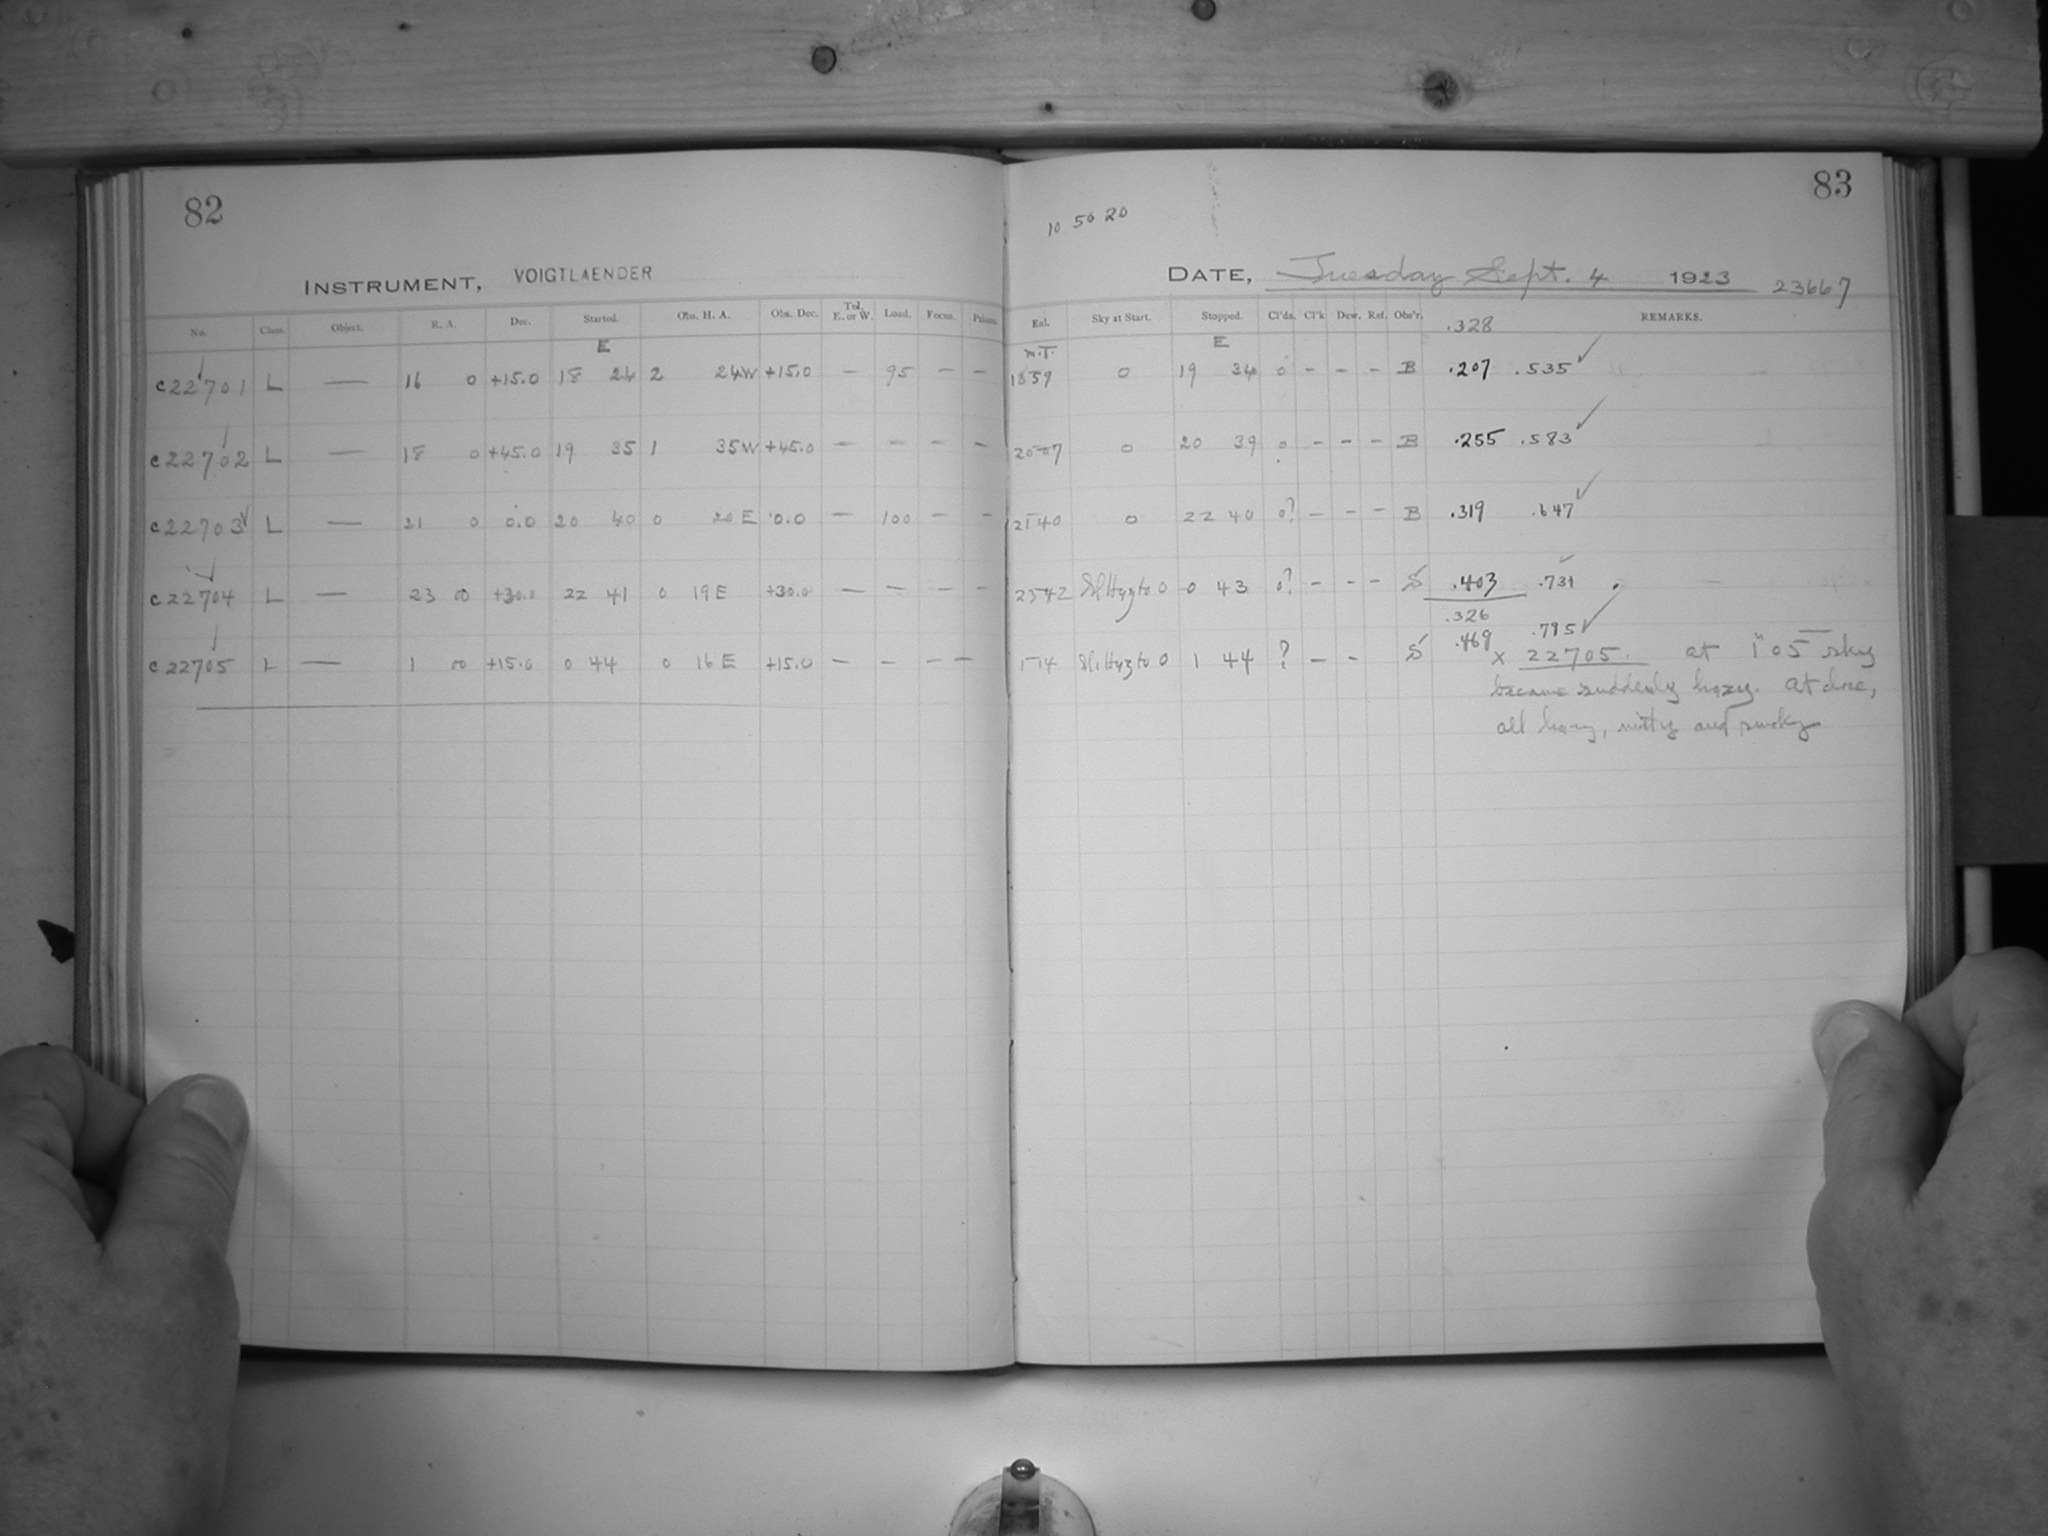 82
INSTRUMENT, VOIGTLAENDER
No. Class. Object. R. A. Dec. Started. Obs. H. A. Obs. Dec. Tel. E. or W. Load. Focus. Prisms.
E
c22701 L — 16 0 +15.0 18 24 2 24W +15.0 — 95 — —
c22702 L — 18 0 +45.0 19 35 1 35W +45.0 — — — —
c22703 L — 21 0 0.0 20 40 0 20 E 0.0 — 100 — —
c22704 L — 23 00 +30.0 22 41 0 19 E +30.0 — — — —
c22705 L — 1 00 +15.0 0 44 0 16 E +15.0 — — — —
83
10 50 20
DATE, Tuesday Sept. 4 1923 23667
Sky at Start. Stopped. Cl'ds. Cl'k Dew. Ref. Obs'r. REMARKS.
.328
M.T. E
1859 0 19 34 0 — — — B .207 .535 ✓
2007 0 20 39 0 — — — B .255 .583 ✓
2140 0 22 40 0? — — — B .319 .647 ✓
2342 0 0 43 0? — — — S .403 .731 ✓
.326
.795 ✓
114 0 1 44 ? — — S .469 x 22705. at 1 05 sky
became suddenly hazy. At close,
all hazy, misty and smoky